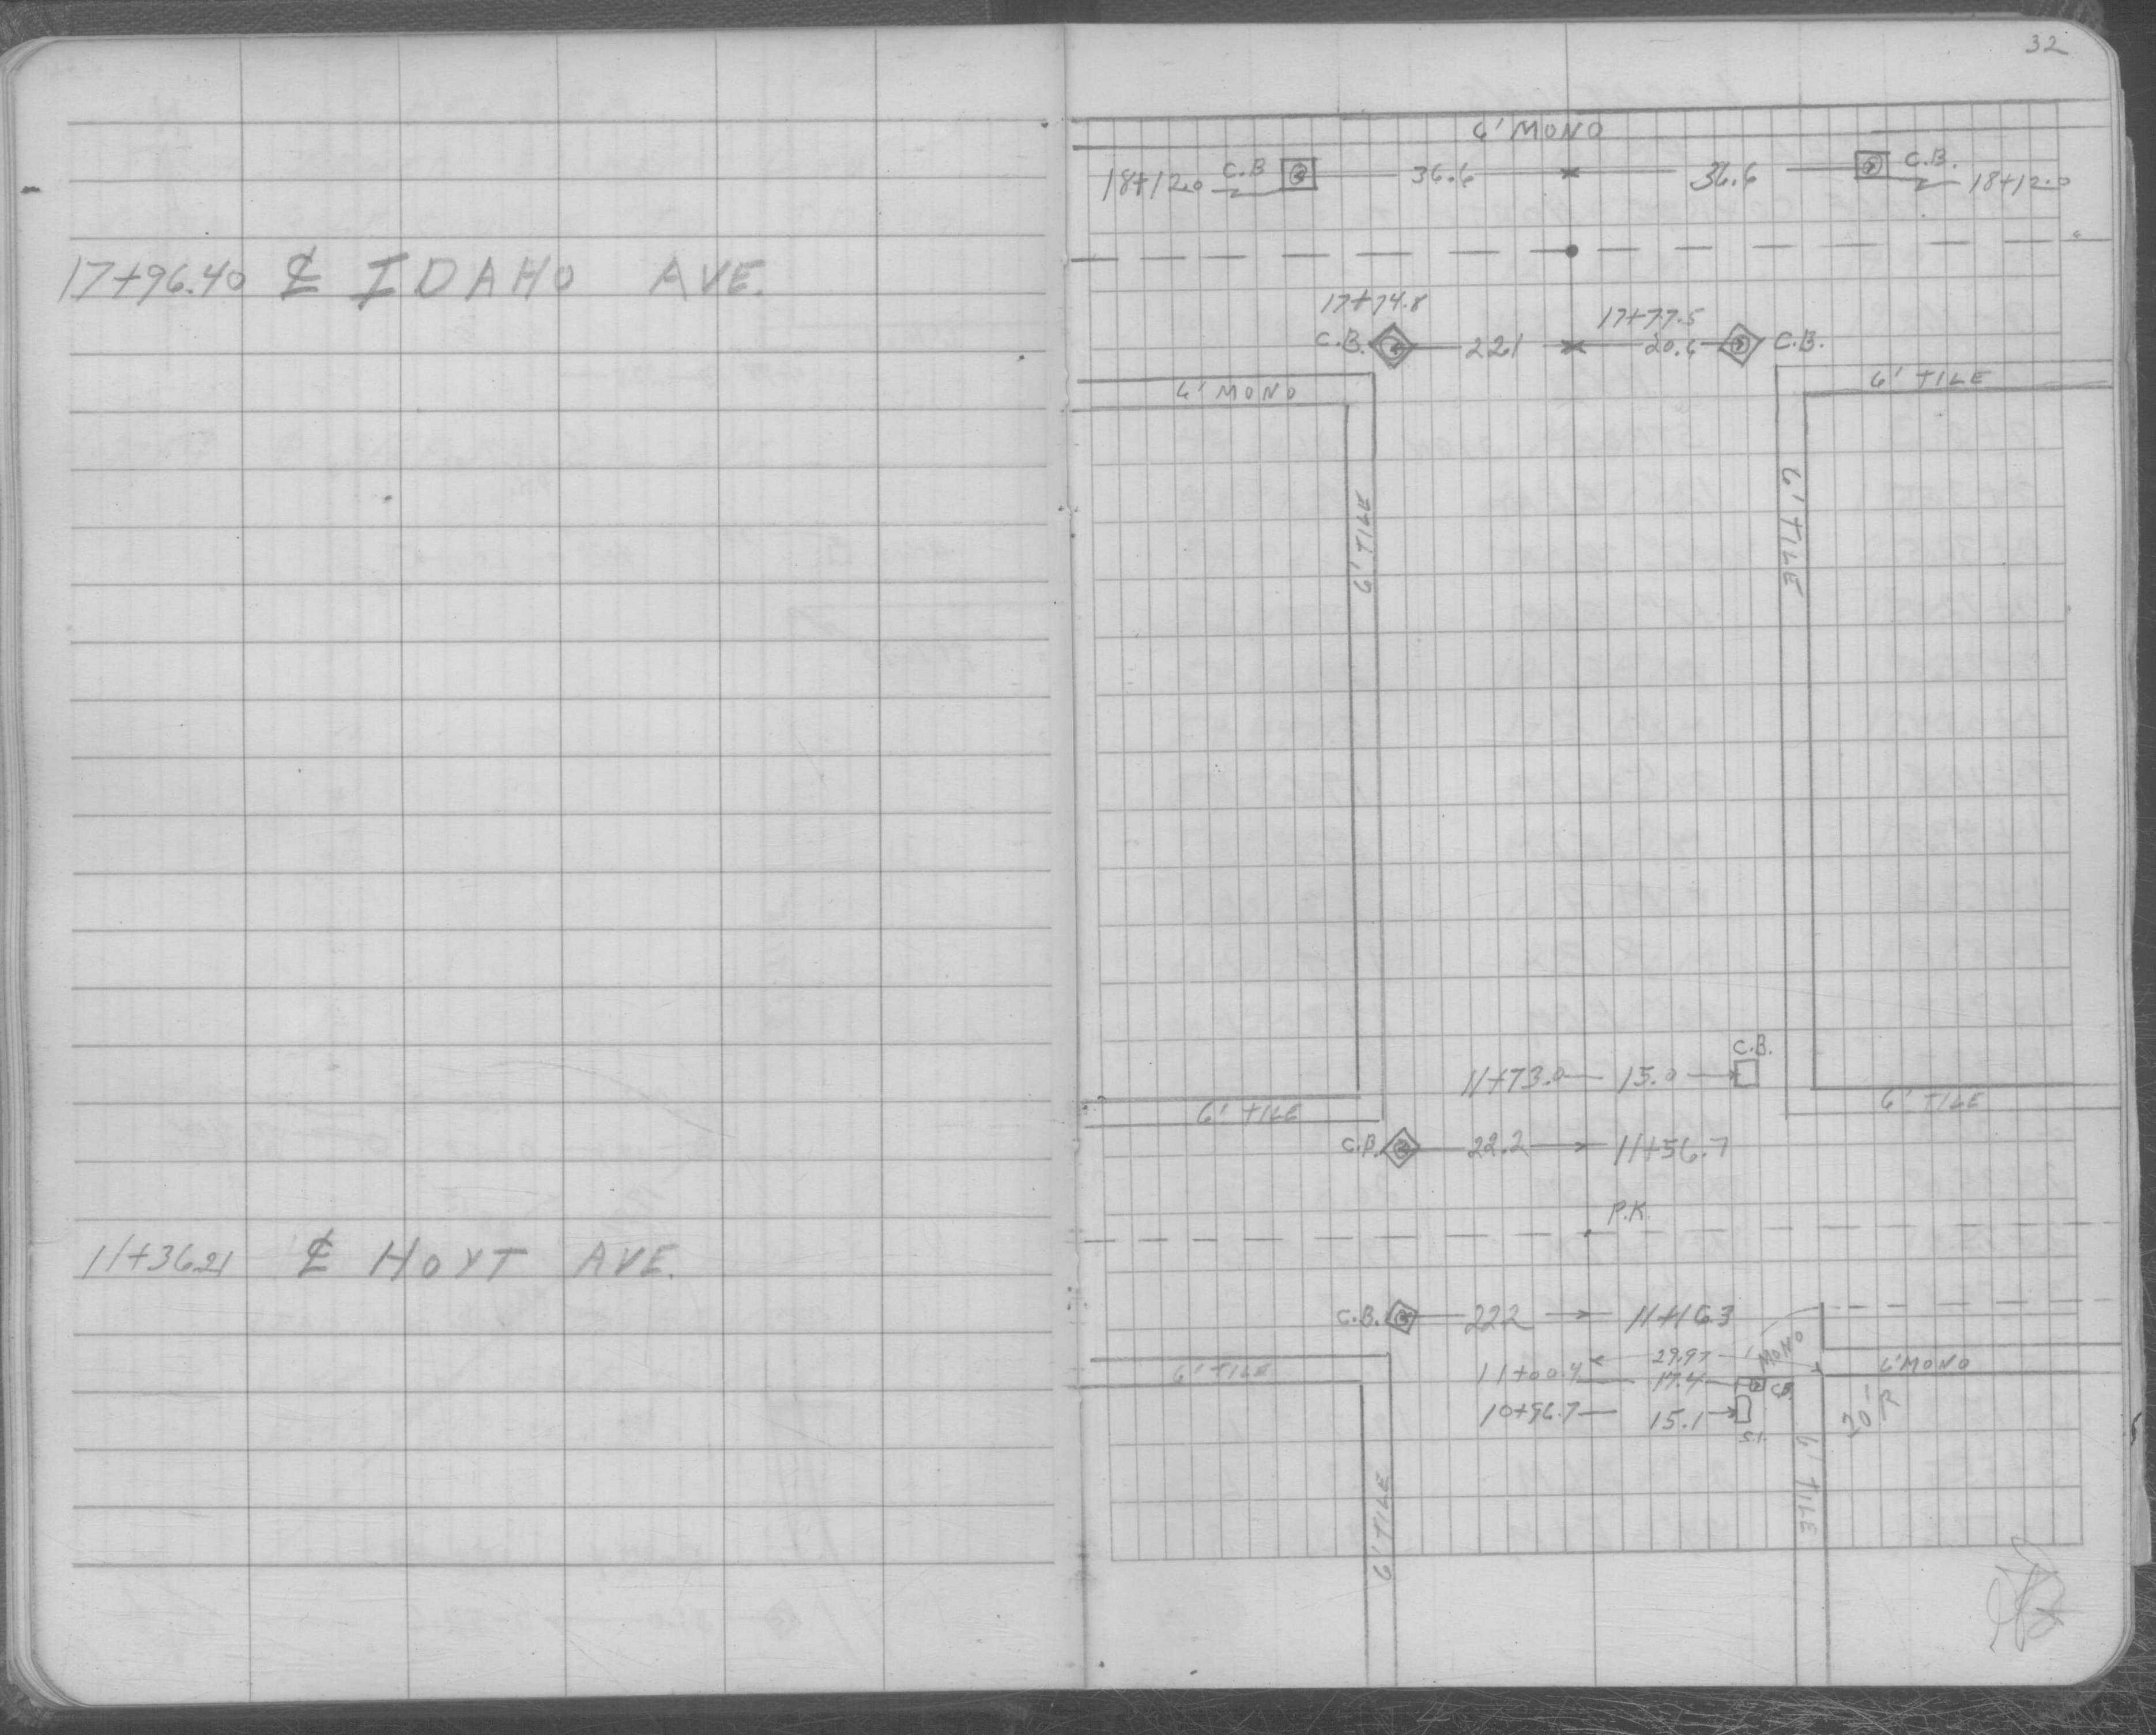 32
6' MONO
18+12.0 C.B 36.6 36.6 C.B. 18+12.0
17+96.40 ℄ IDAHO AVE.
17+74.8 17+77.5
C.B. 22.1 20.6 C.B.
6' MONO 6' TILE
6' TILE 6' TILE
C.B.
11+73.0 15.0
6' TILE 6' TILE
C.B. 22.2 11+56.7
P.K.
11+36.21 ℄ HOYT AVE.
C.B. 22.2 11+16.3
6' TILE 29.97 MONO 6' MONO
11+00.4 17.4 C.B.
10+96.7 15.1 20' R
S.I.
6' TILE 6' TILE